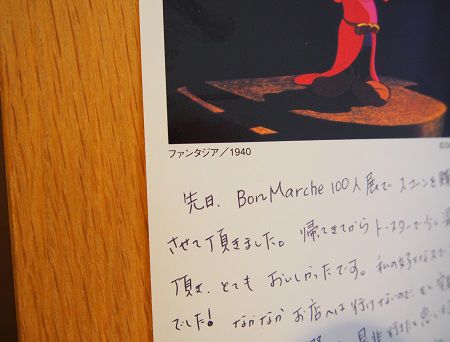 ©D
ファンタジア／1940
先日、Bon Marche 100人展で スコーンを
させて頂きました。帰ってきてから トースターで少し
頂き、とても おいしかったです。私の好きなスコー
でした！ なかなか お店へは 行けないので、
是非 行きたいと思い